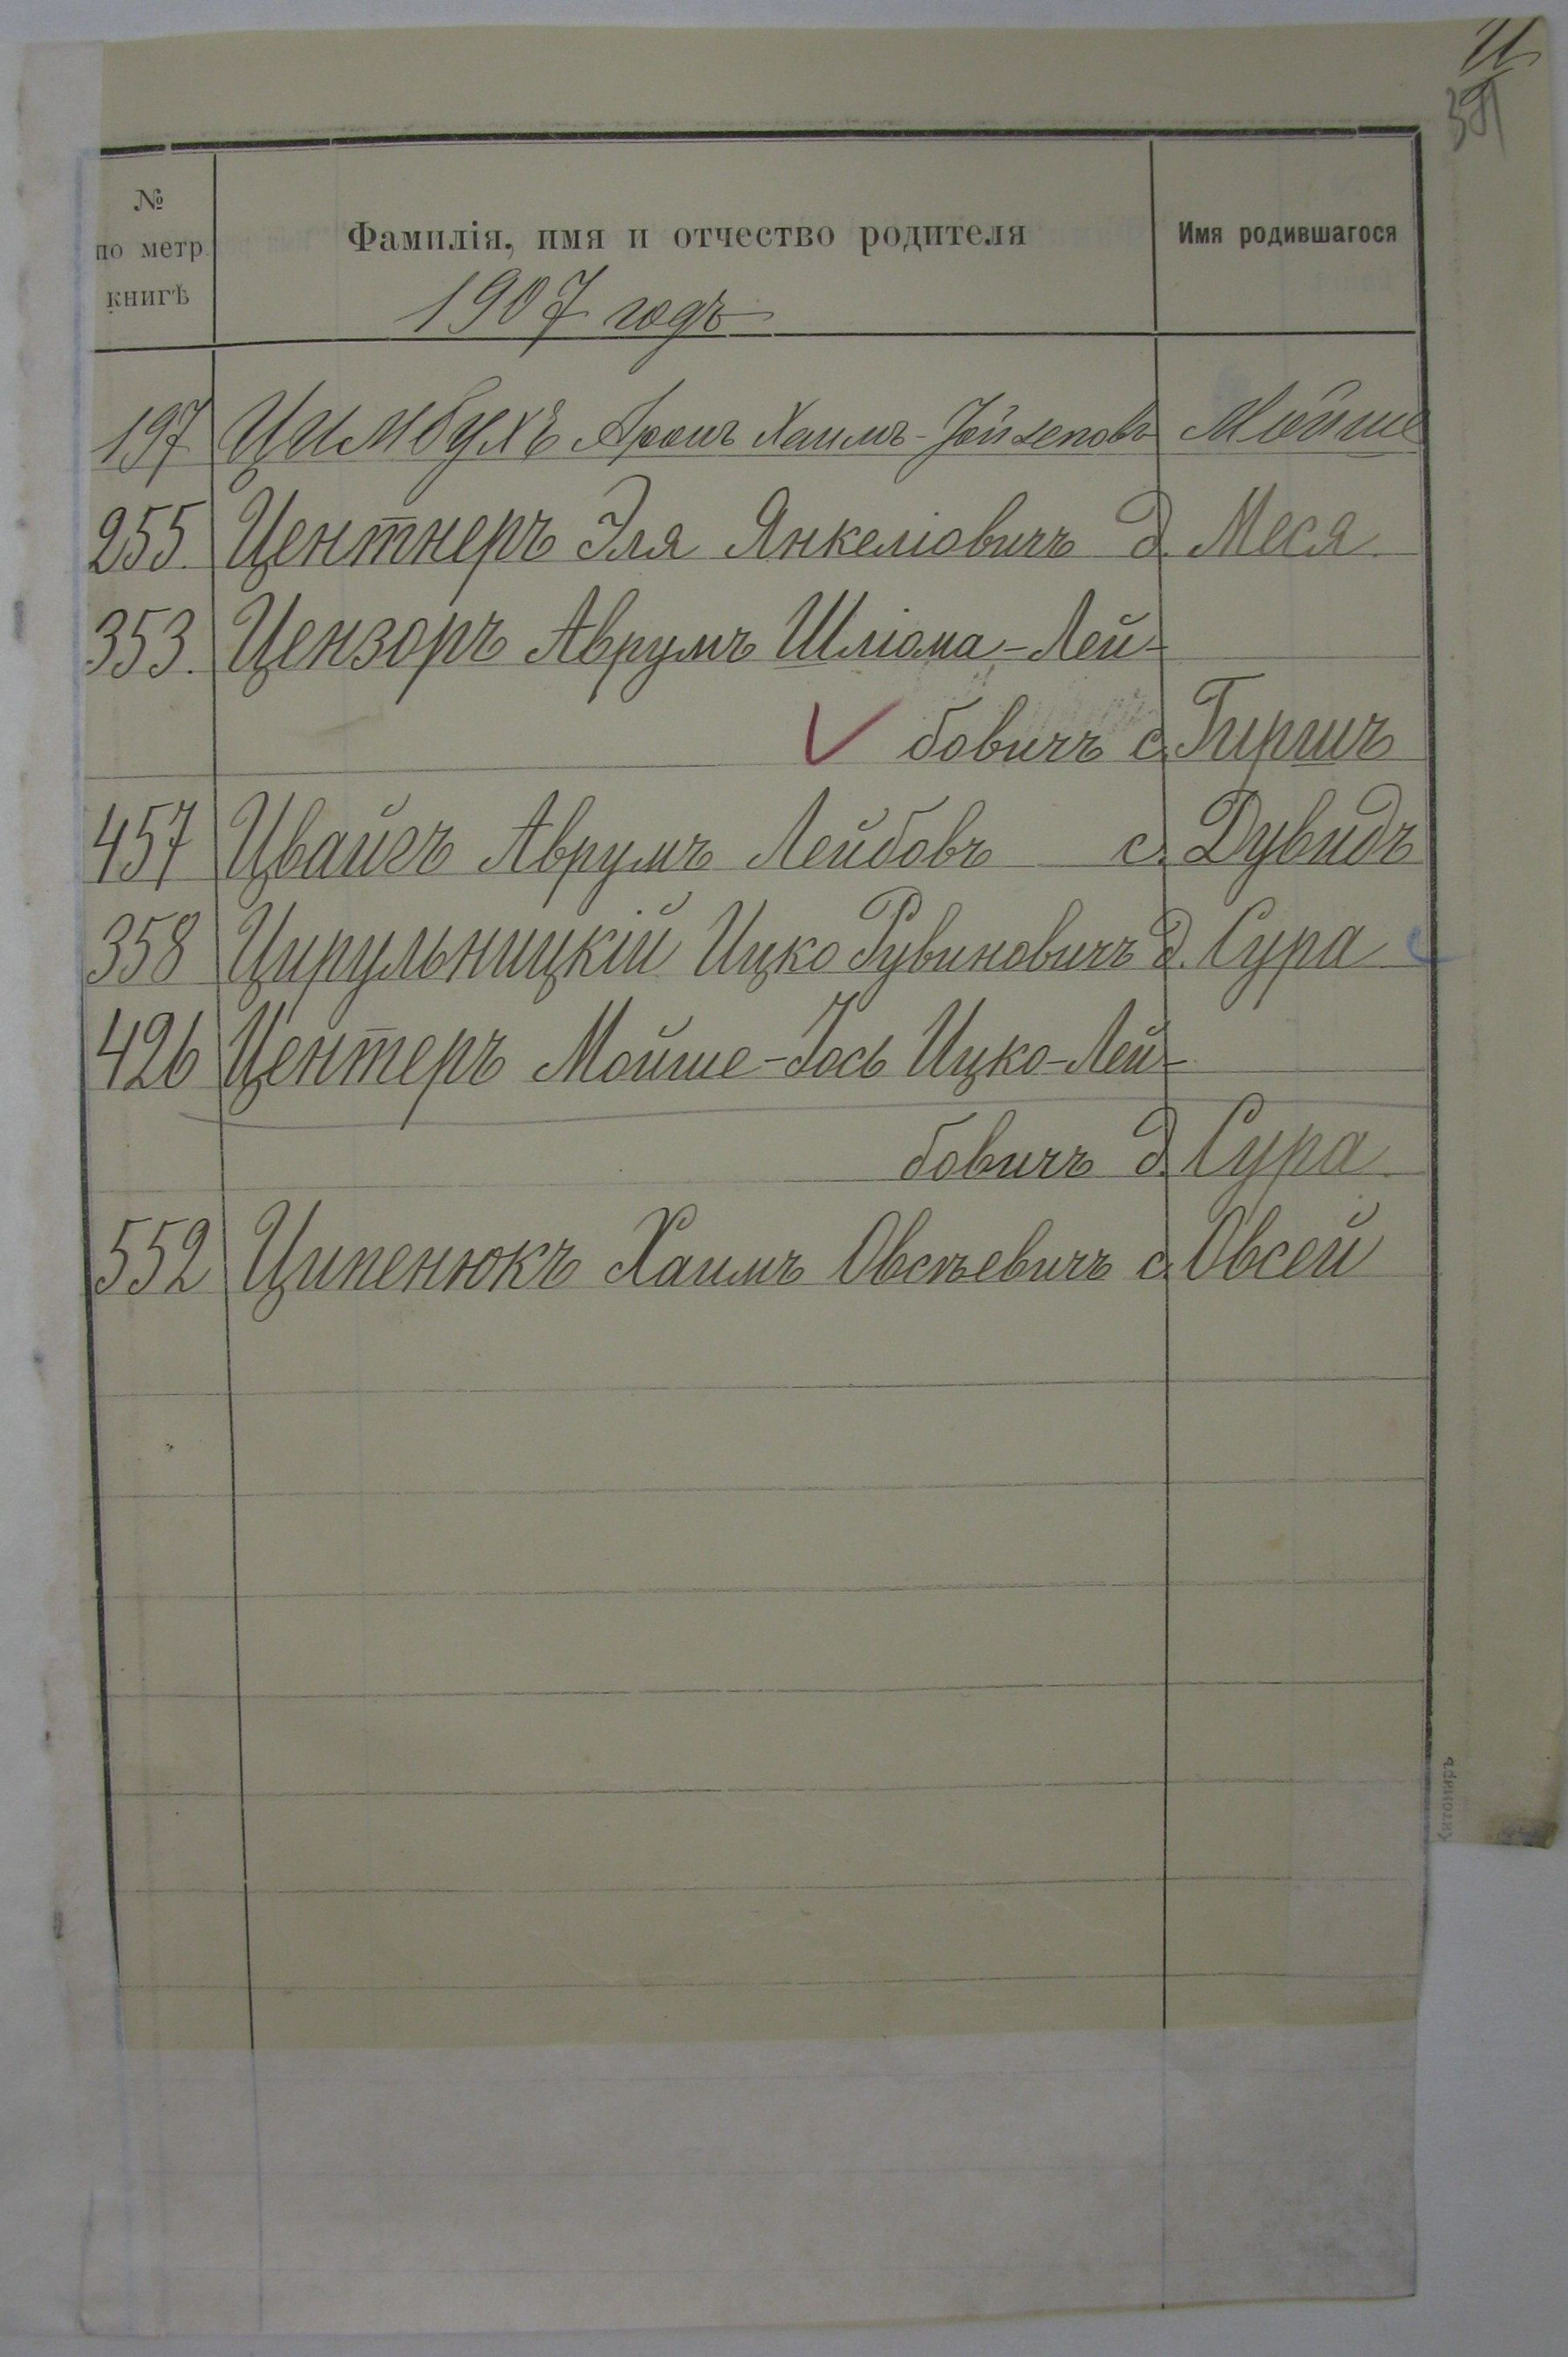 Ц
№
по метр.
книгѣ
Фамилія, имя и отчество родителя
Имя родившагося
1907 годъ
197 Цимбухъ Аронъ Хаимъ- Мойше
255. Центнеръ Эля Янкеліовичъ д. Меся
353. Цензоръ Аврумъ Шліома-Лей-
бовичъ с. Гиршъ
457 Цвайгъ Аврумъ Лейбовъ с. Дувидъ
358 Цирульницкій Ицко Рувиновичъ д. Сура
426 Центеръ Мойше-Іось Ицко-Лей-
бовичъ д. Сура
552 Ципенюкъ Хаимъ Овсѣевичъ с. Овсей
Житомиръ